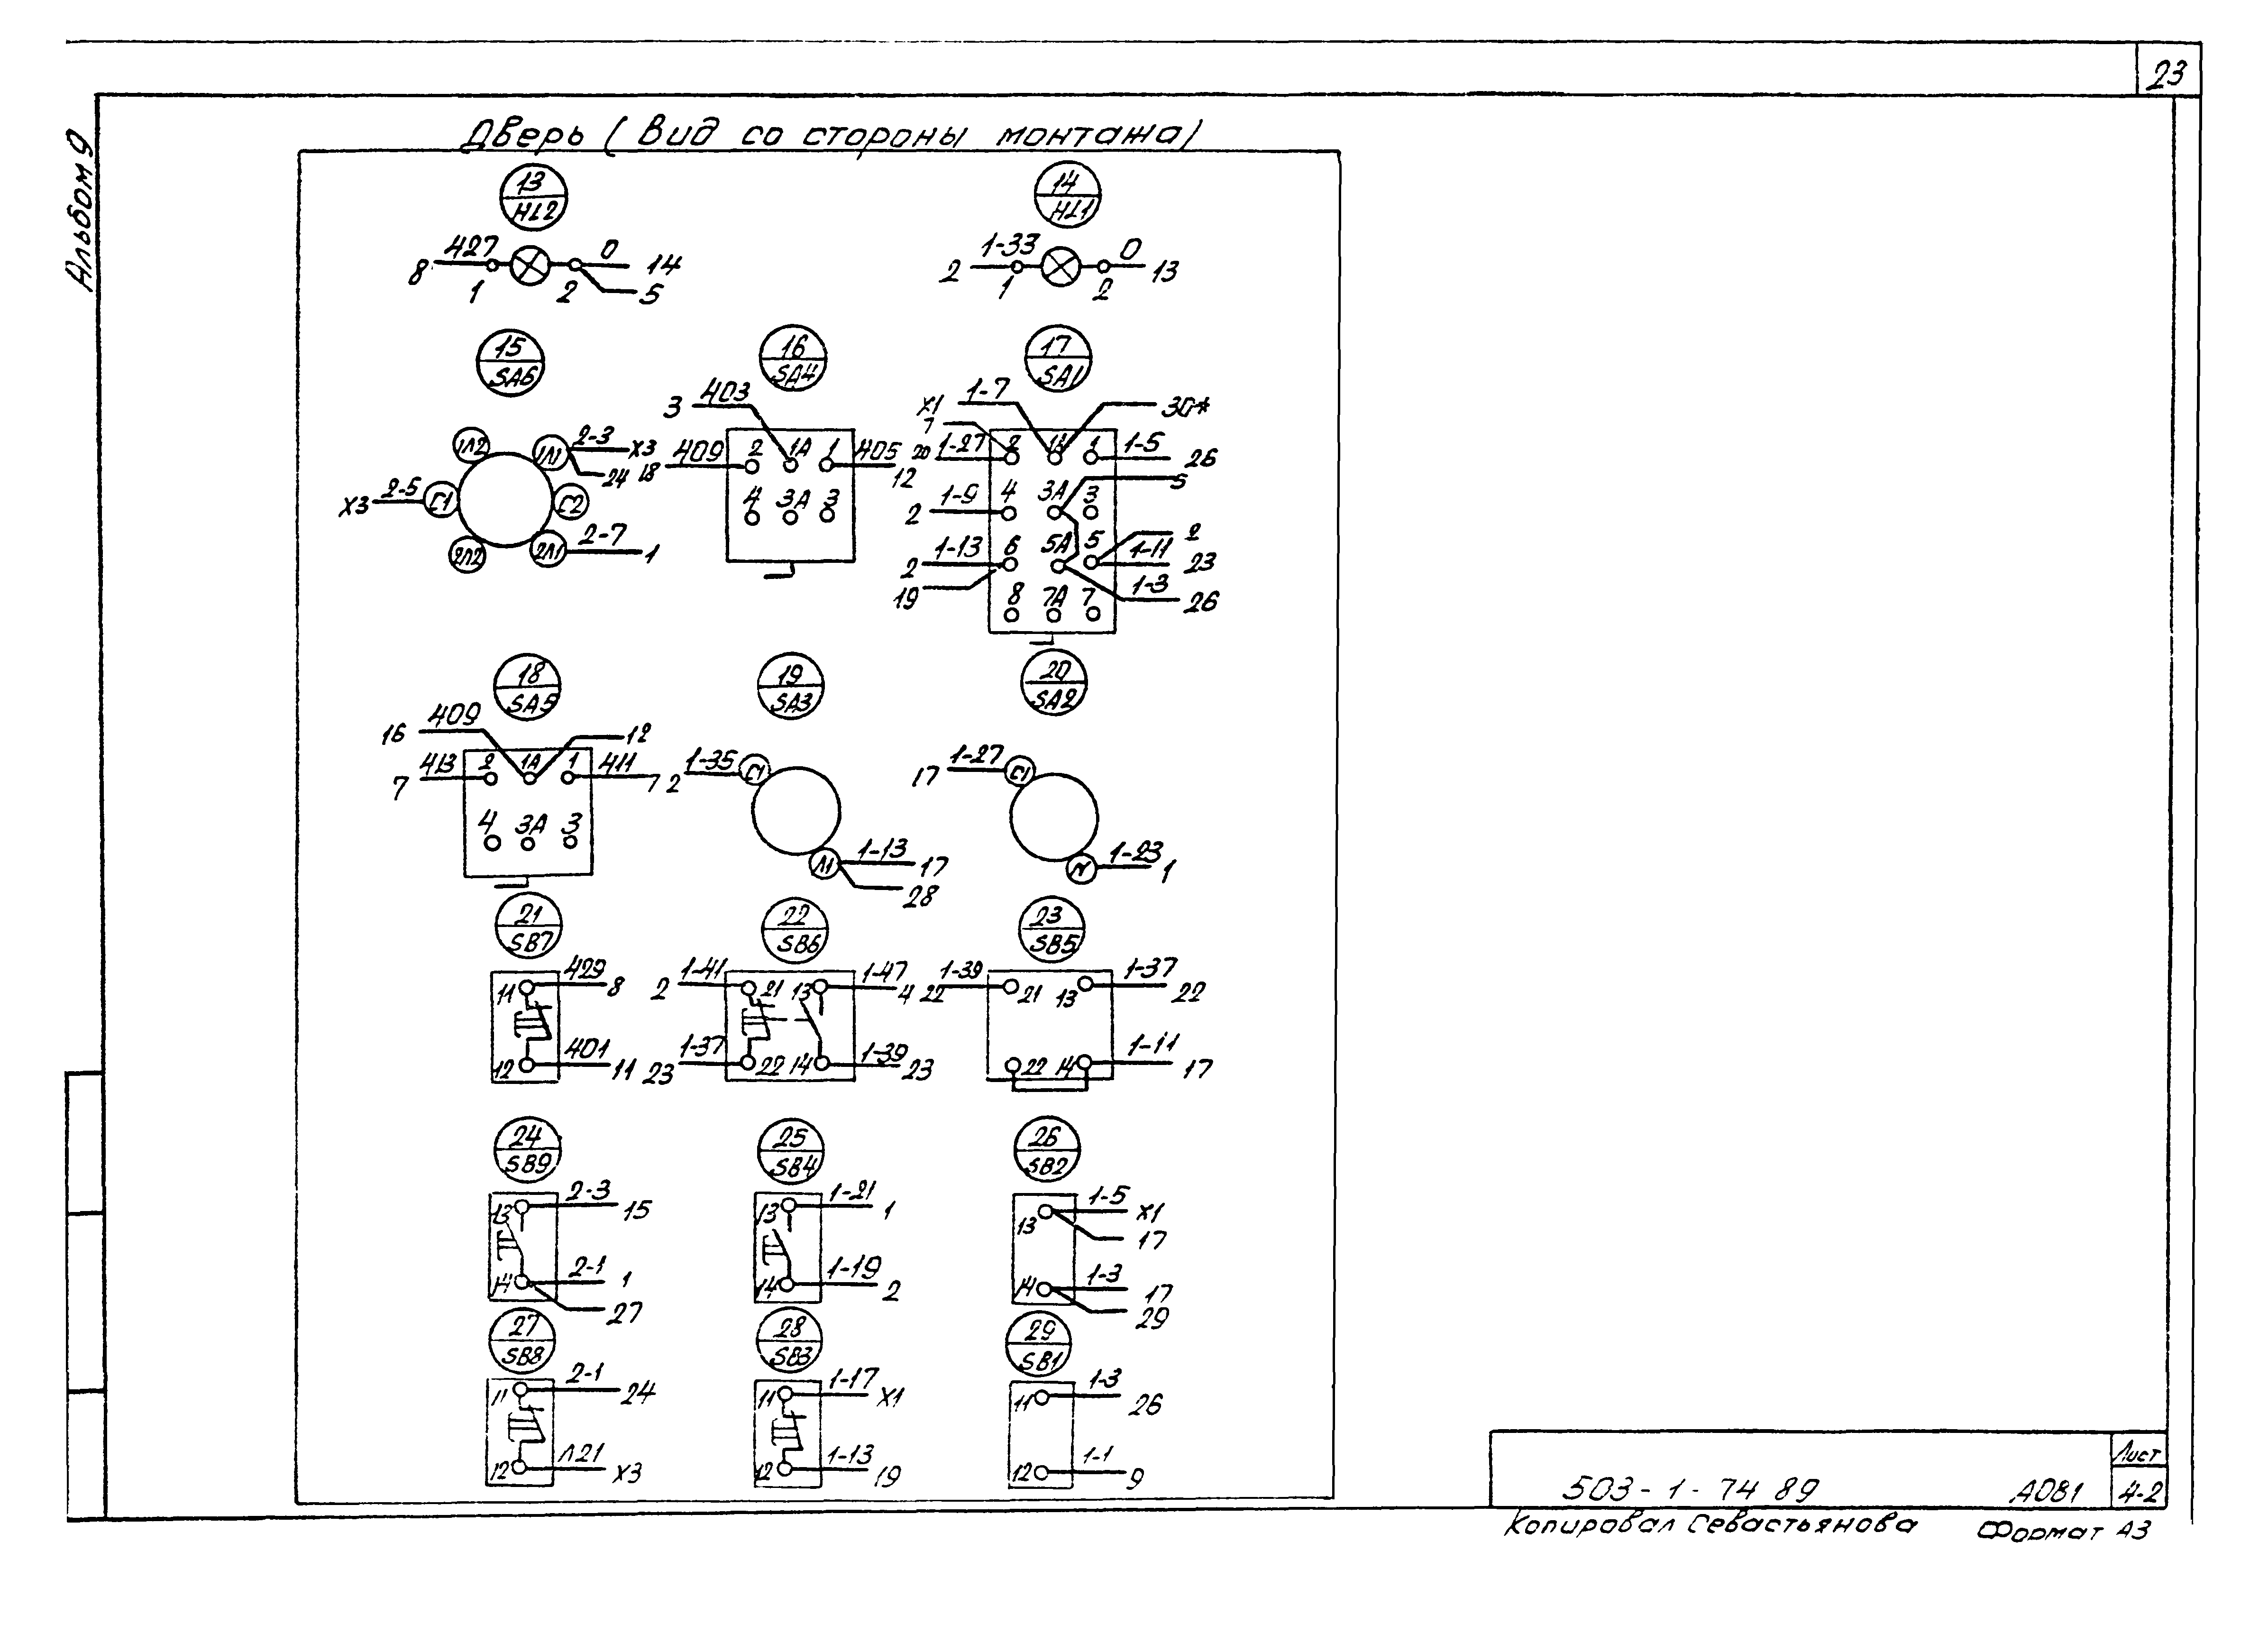 23
Альбом 9
Дверь (Вид со стороны монтажа)
13
HL2
14
HL1
8 427 1 2 0 14
5
2 1-33 1 2 0 13
15
SA6
16
SA4
17
SA1
1Л2 1Л1 2-3 Х3
24
Х3 2-5 С1 С2
2Л2 2Л1 2-7 1
3 403
18 409 2 1А 1 405 12
4 3А 3
Х1 1-7 30*
7
20 1-27 2 1А 1 1-5 26
5
2 1-9 4 3А 3
2
2 1-13 6 5А 5 1-11 23
19 1-3 26
8 7А 7
18
SA5
19
SA3
20
SA2
16 409 12
7 413 2 1А 1 411 7
4 3А 3
2 1-35 С1
Л1 1-13 17
28
17 1-27 С1
1-23 1
21
SB7
22
SB6
23
SB5
11 429 8
12 401 11
2 1-41 21 13 1-47 4
23 1-37 22 14 1-39 23
22 1-39 21 13 1-37 22
22 14 1-11 17
24
SB9
25
SB4
26
SB2
13 2-3 15
14 2-1 1
27
13 1-21 1
14 1-19 2
13 1-5 Х1
17
14 1-3 17
29
27
SB8
28
SB3
29
SB1
11 2-1 24
12 Л21 Х3
11 1-17 Х1
12 1-13 19
11 1-3 26
12 1-1 9
503-1-74 89 А081
Лист
4-2
Копировал Севастьянова Формат А3